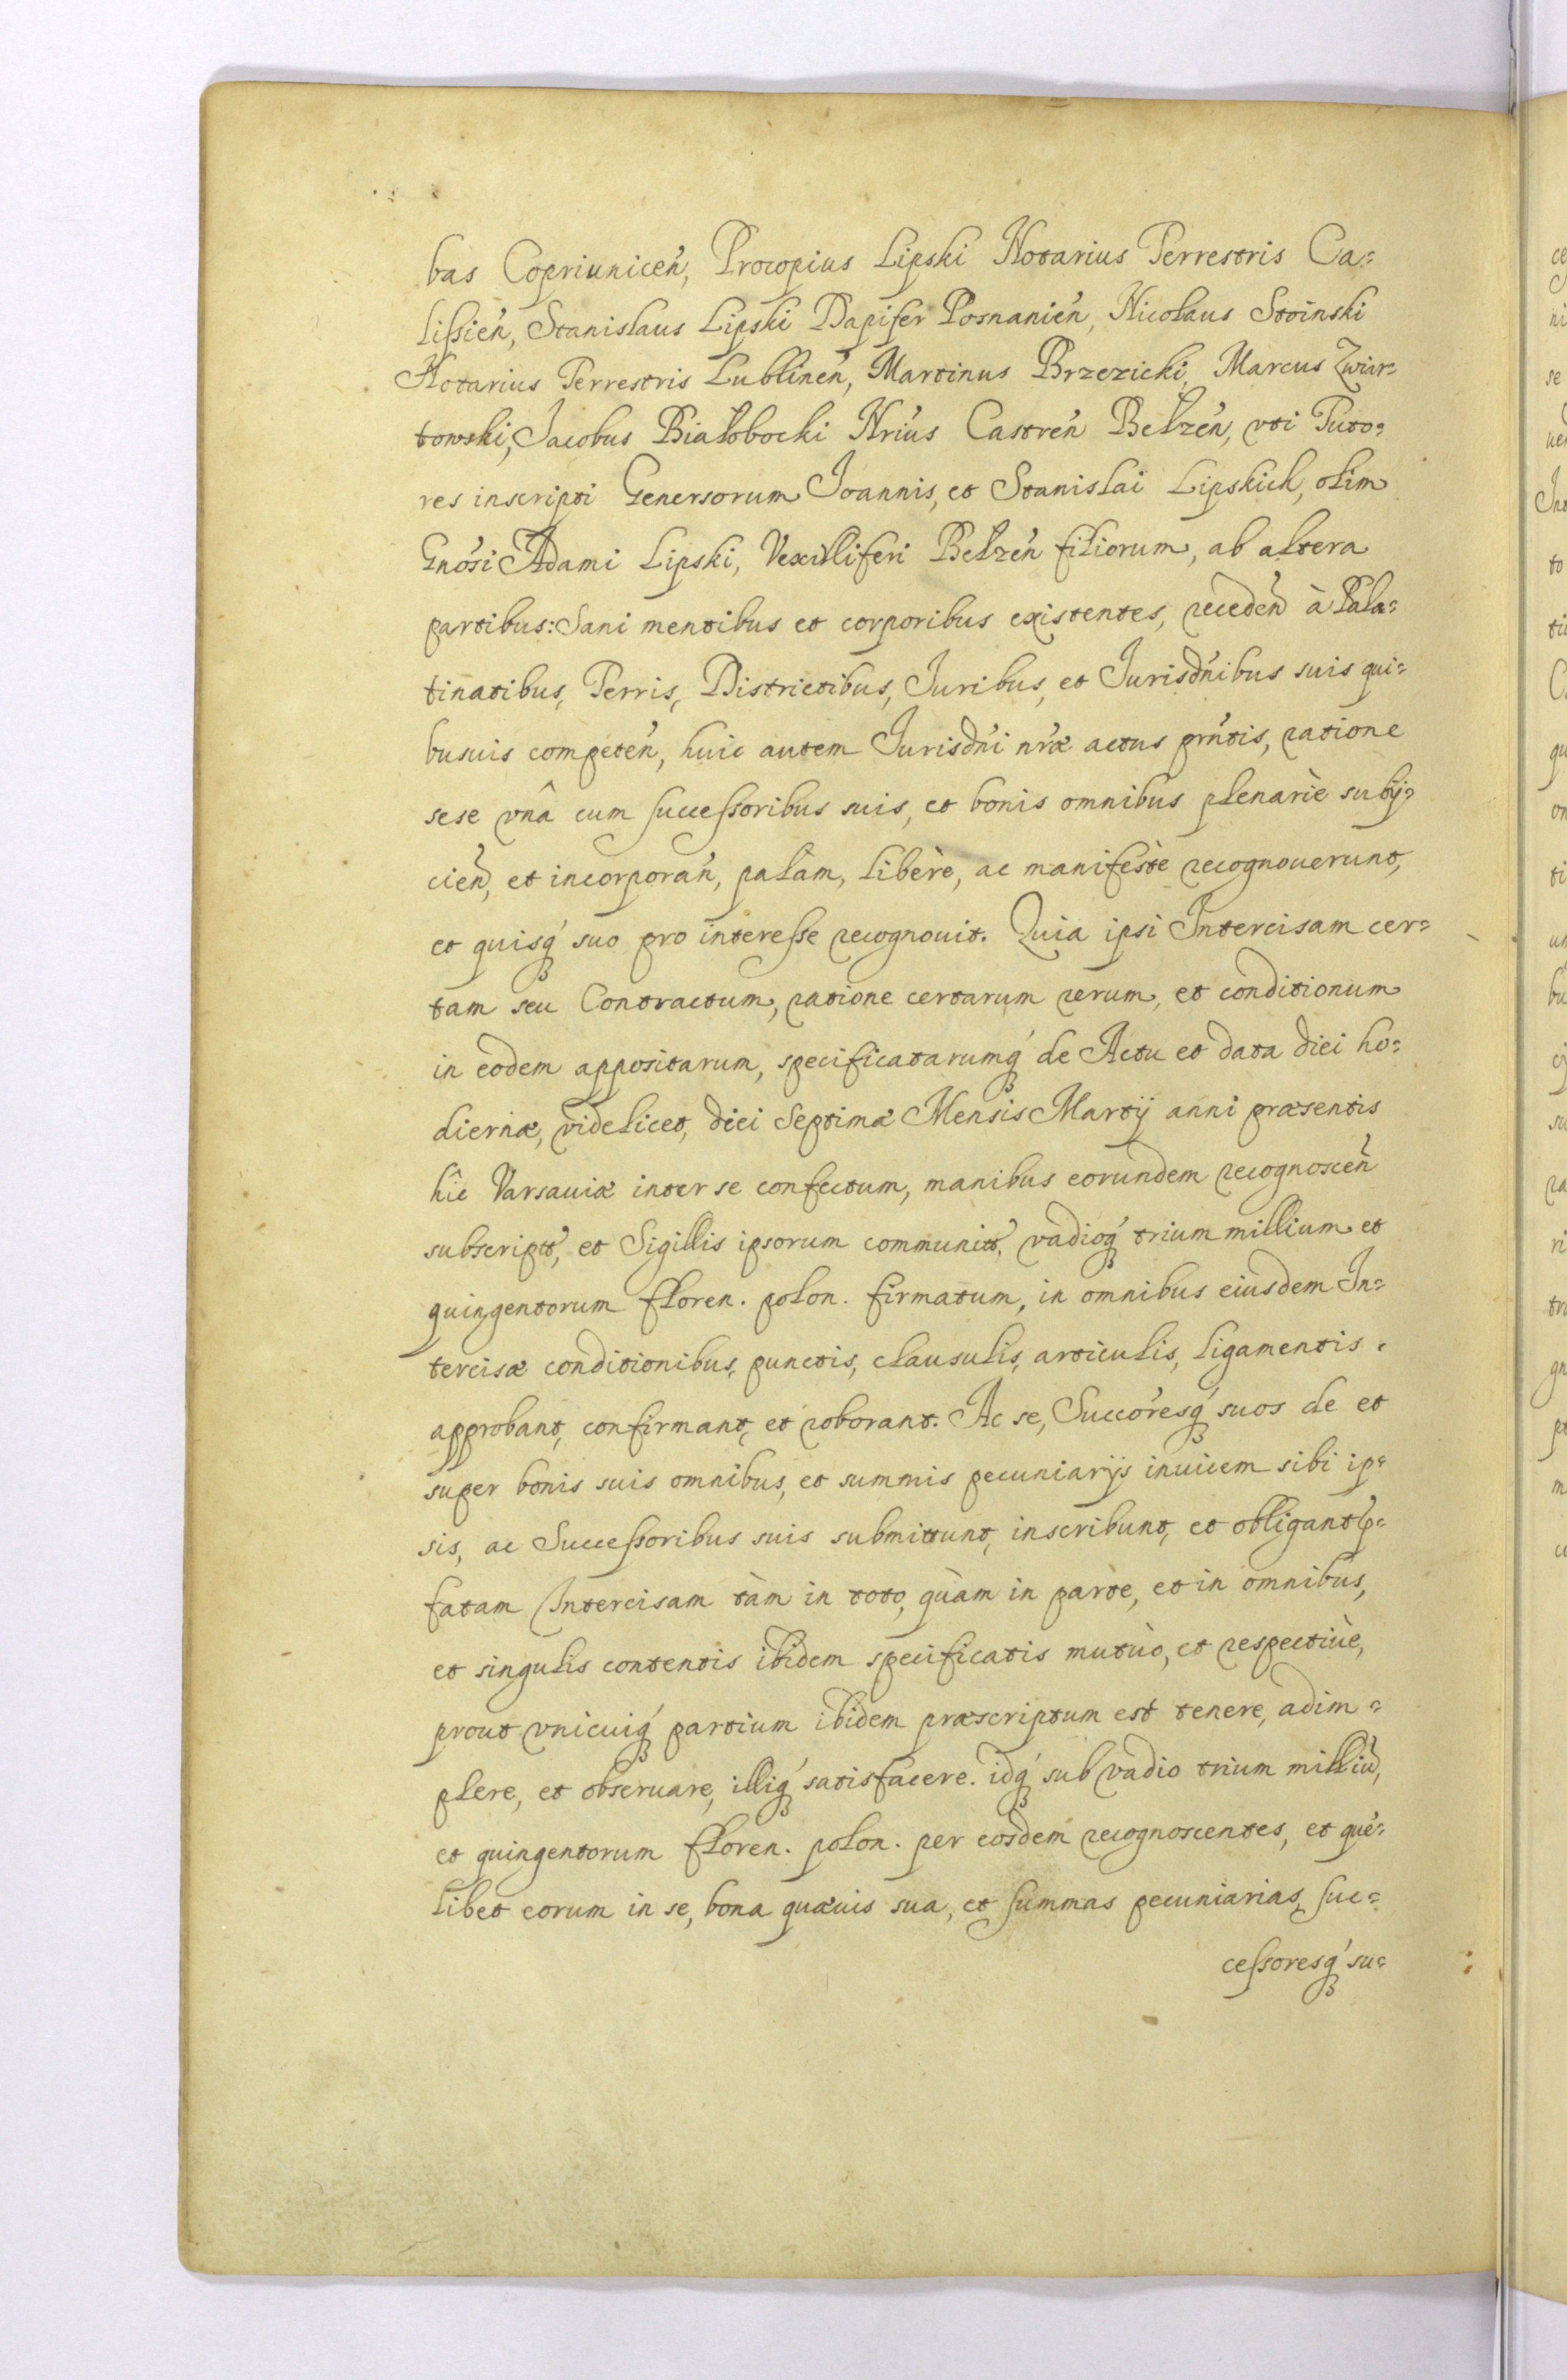 bas Copriunicen̄, Procopius Lipski Notarius Terrestris Ca=
lissien̄, Stanislaus Lipski Dapifer Posnanien̄, Nicolaus Stoinski
Notarius Terrestris Lublinen̄, Martinus Brzezicki, Marcus Zwiar=
towski, Jacobus Białobocki Nrius Castren̄ Belzen̄, vti Tuto=
res inscripti Generosorum Joannis, et Stanislai Lipskich, olim
Gnosi Adami Lipski, Vexilliferi Belzen̄ filiorum, ab altera
partibus: Sani mentibus et corporibus existentes, receden̄ à Pala=
tinatibus, Terris, Districtibus, Juribus, et Jurisdnibus suis qui=
busuis competen̄, huic autem Jurisdni nræ actus prntis, ratione
sese vnâ cum successoribus suis, et bonis omnibus plenariè subij=
cien̄, et incorporan̄, palàm, liberè, ac manifestè recognouerunt,
et quisq́ suo pro interesse recognouit. Quia ipsi Intercisam cer=
tam seu Contractum, ratione certarum rerum, et conditionum
in eodem appositarum, specificatarumq́ de Actu et data diei ho=
diernæ, videlicet, diei Septimæ Mensis Martij anni præsentis
hîc Varsauiæ inter se confectum, manibus eorundem recognoscen̄
subscript, et Sigillis ipsorum communit, vadioq́ trium millium et
quingentorum floren. polon. firmatum, in omnibus eiusdem In=
tercisæ conditionibus, punctis, clausulis, articulis, ligamentis.
approbant, confirmant, et roborant. Ac se, Succoresq́ suos de et
super bonis suis omnibus, et summis pecuniarijs inuicem sibi ip=
sis, ac Successoribus suis submittunt, inscribunt, et obligant p=
fatam Intercisam tàm in toto, quàm in parte, et in omnibus,
et singulis contentis ibidem specificatis mutuò, et respectiuè,
prout vnicuiq́ partium ibidem præscriptum est tenere, adim=
plere, et obseruare, illiq́ satisfacere. idq́ sub vadio trium milliū,
et quingentorum floren. polon. per eosdem recognoscentes, et quē=
libet eorum in se, bona quæuis sua, et summas pecuniarias, suc=
cessoresq́ su=